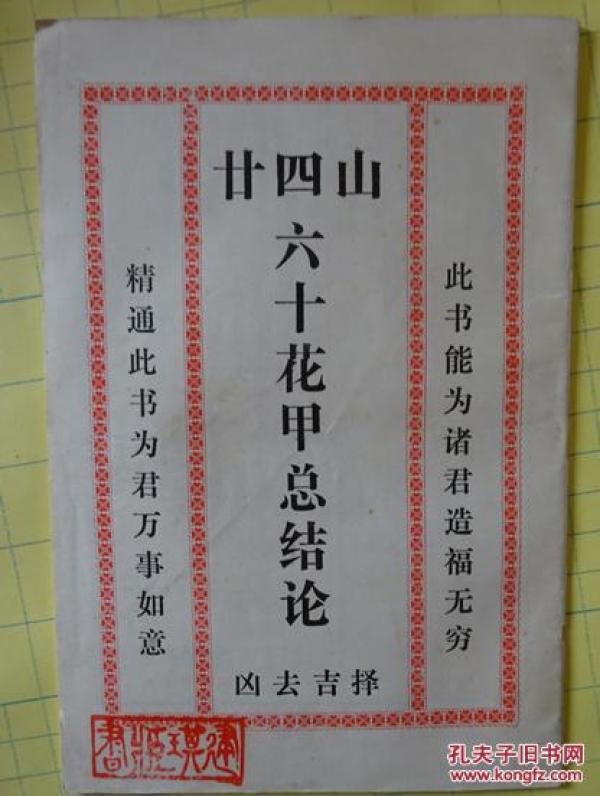 山四廿
六十花甲总结论
此书能为诸君造福无穷
精通此书为君万事如意
择吉去凶
孔夫子旧书网
www.kongfz.com